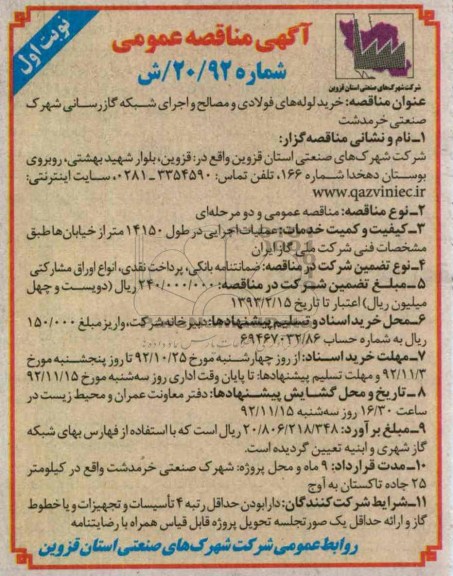 نوبت اول
آگهی مناقصه عمومی
شماره ۲۰/۹۲/ش
شرکت شهرک‌های صنعتی استان قزوین
عنوان مناقصه: خرید لوله‌های فولادی و مصالح و اجرای شبکه گازرسانی شهرک
صنعتی خرمدشت
۱ـ نام و نشانی مناقصه‌گزار:
شرکت شهرک‌های صنعتی استان قزوین واقع در: قزوین، بلوار شهید بهشتی، روبروی
بوستان دهخدا شماره ۱۶۶، تلفن تماس: ۳۳۵۴۵۹۰ـ۰۲۸۱، سایت اینترنتی:
www.qazviniec.ir
۲ـ نوع مناقصه: مناقصه عمومی و دو مرحله‌ای
۳ـ کیفیت و کمیت خدمات: عملیات اجرایی در طول ۱۴۱۵۰ متر از خیابان‌ها طبق
مشخصات فنی شرکت ملی گاز ایران
۴ـ نوع تضمین شرکت در مناقصه: ضمانتنامه بانکی، پرداخت نقدی، انواع اوراق مشارکتی
۵ـ مبلغ تضمین شرکت در مناقصه: ۲۴۰/۰۰۰/۰۰۰ ریال (دویست و چهل
میلیون ریال) اعتبار تا تاریخ ۱۳۹۳/۲/۱۵
۶ـ محل خرید اسناد و تسلیم پیشنهادها: دبیرخانه شرکت، واریز مبلغ ۱۵۰/۰۰۰
ریال به شماره حساب ۶۹۴۶۷۰۳۲/۸۶
۷ـ مهلت خرید اسناد: از روز چهارشنبه مورخ ۹۲/۱۰/۲۵ تا روز پنجشنبه مورخ
۹۲/۱۱/۳ و مهلت تسلیم پیشنهادها: تا پایان وقت اداری روز سه‌شنبه مورخ ۹۲/۱۱/۱۵
۸ـ تاریخ و محل گشایش پیشنهادها: دفتر معاونت عمران و محیط زیست در
ساعت ۱۶/۳۰ روز سه‌شنبه ۹۲/۱۱/۱۵
۹ـ مبلغ برآورد: ۲۰/۸۰۶/۲۱۸/۳۴۸ ریال است که با استفاده از فهارس بهای شبکه
گاز شهری و ابنیه تعیین گردیده است.
۱۰ـ مدت قرارداد: ۹ ماه و محل پروژه: شهرک صنعتی خرمدشت واقع در کیلومتر
۲۵ جاده تاکستان به آوج
۱۱ـ شرایط شرکت‌کنندگان: دارا بودن حداقل رتبه ۴ تأسیسات و تجهیزات و یا خطوط
گاز و ارائه حداقل یک صورتجلسه تحویل پروژه قابل قیاس همراه با رضایتنامه
روابط عمومی شرکت شهرک‌های صنعتی استان قزوین